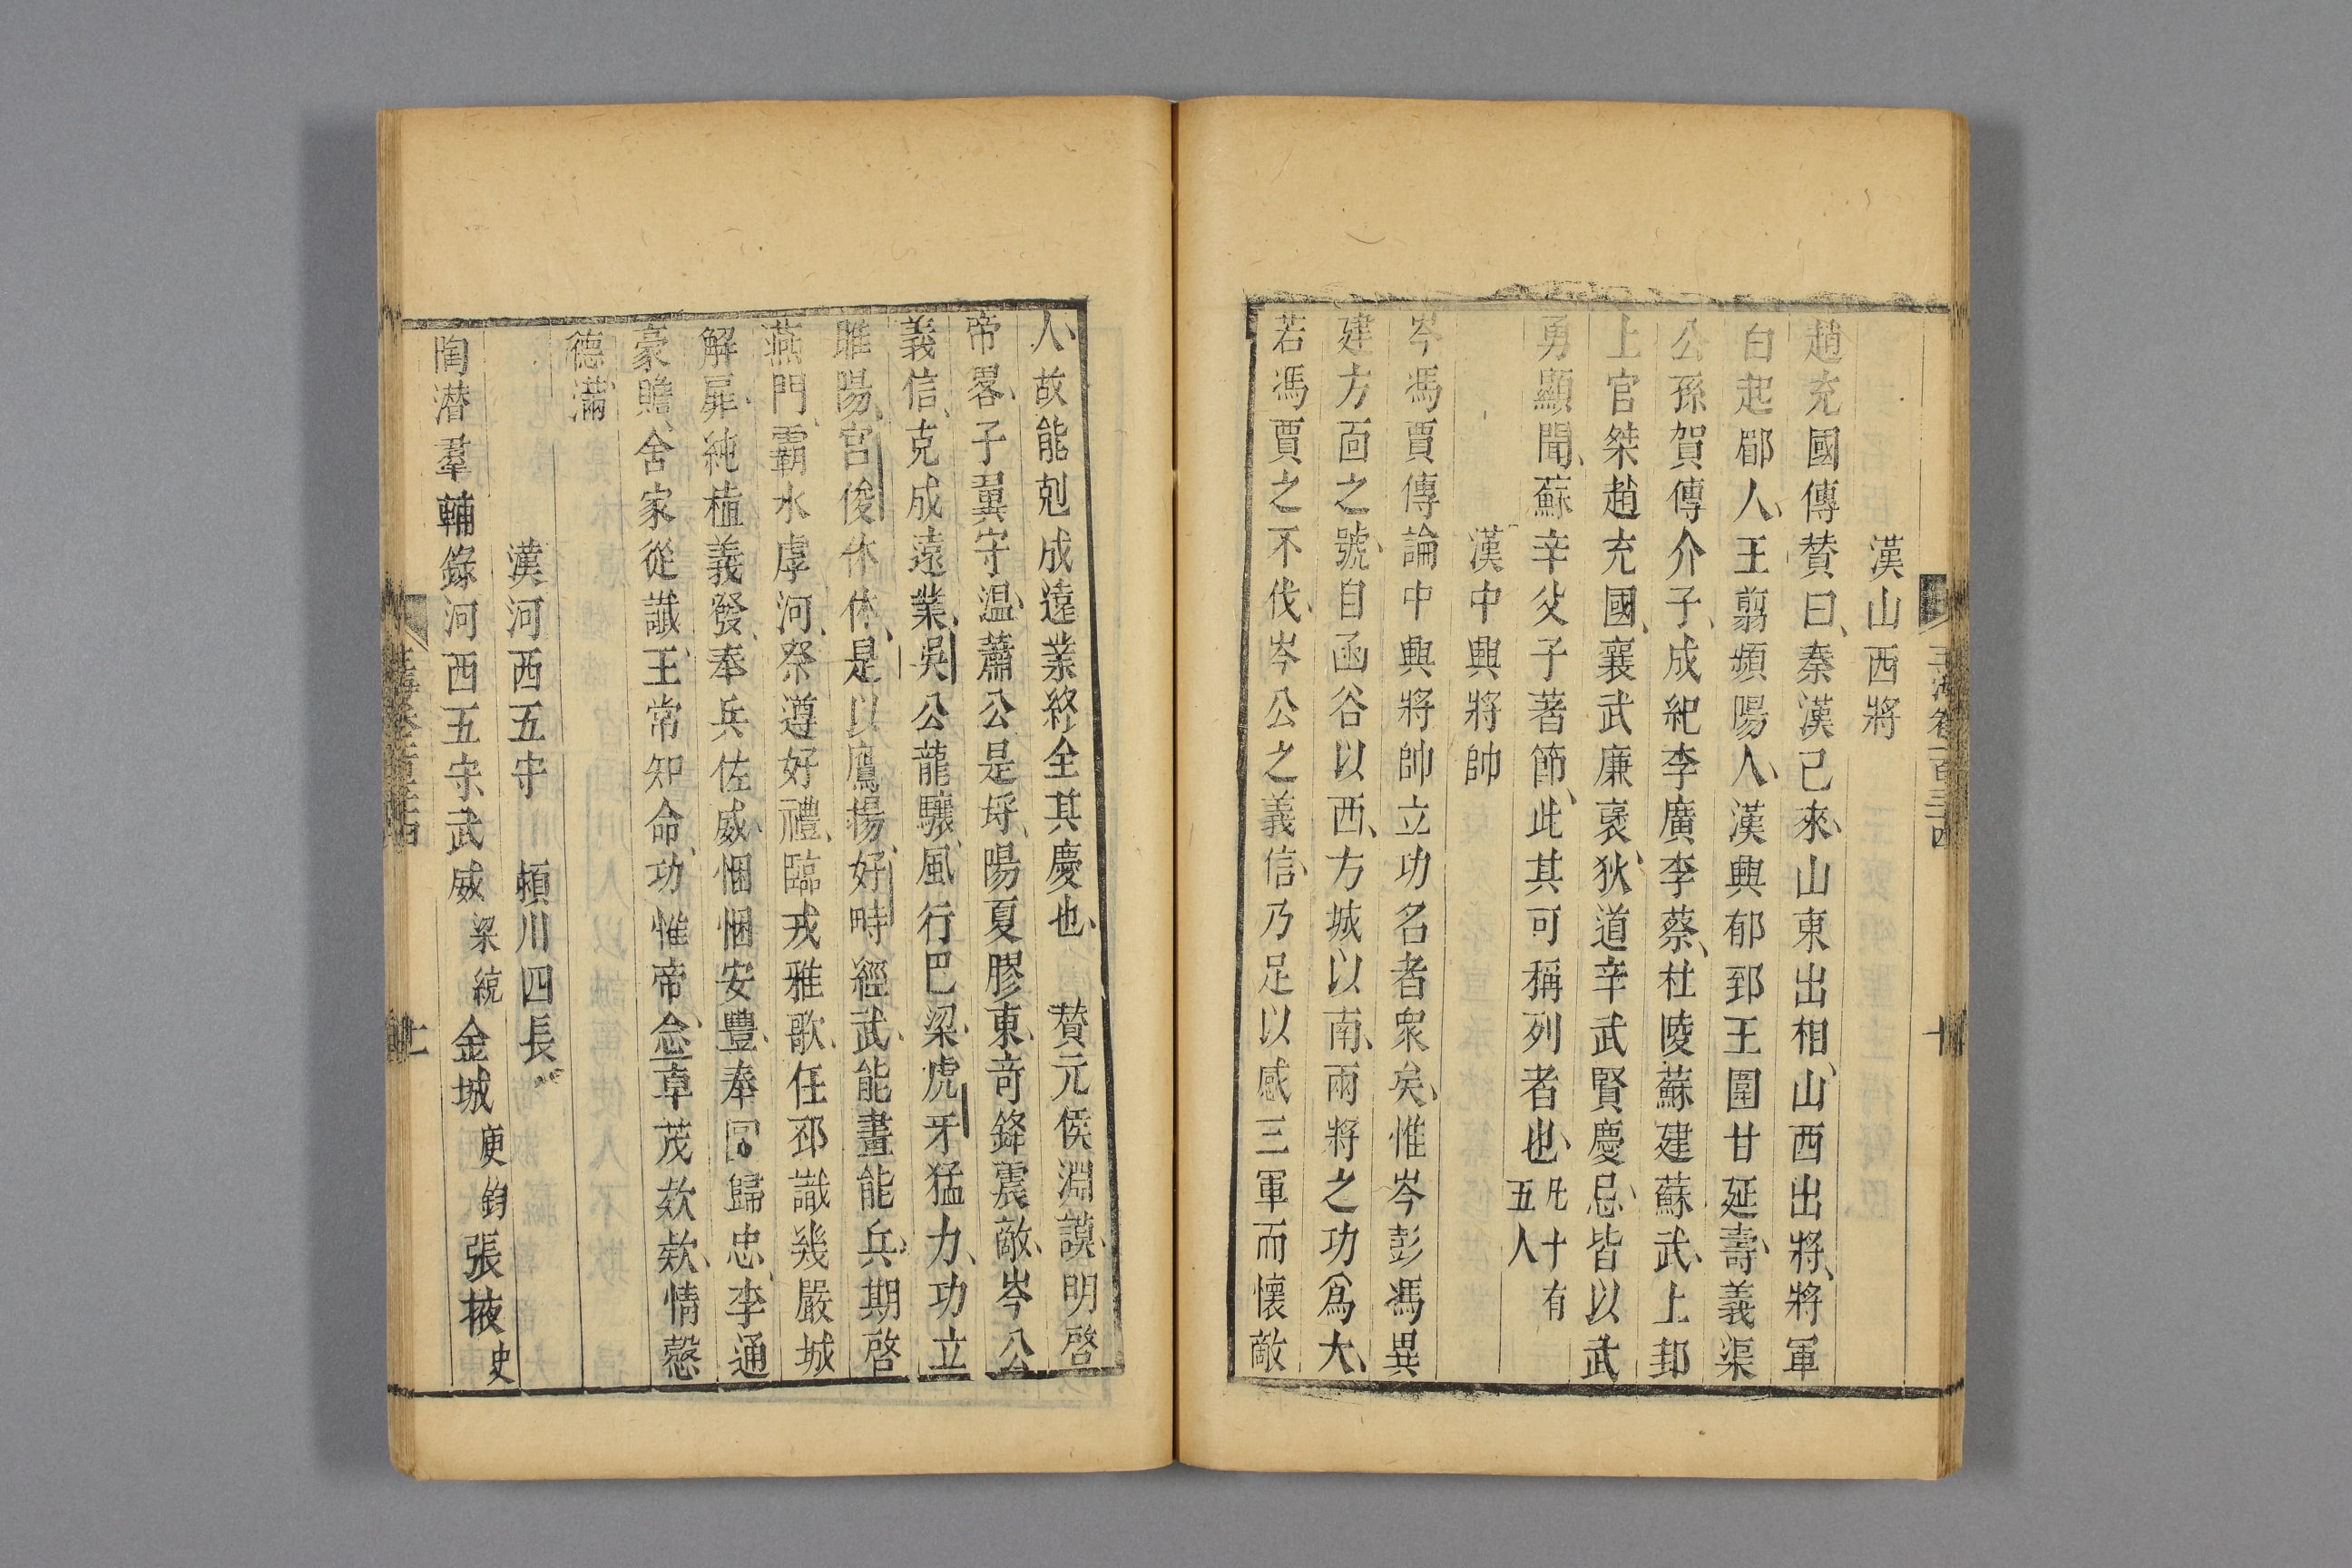 玉海卷一百三十四 十
漢山西將
趙充國傳贊曰秦漢已來山東出相山西出將將軍
白起郿人王翦頻陽人漢興郁郅王圍甘延壽義渠
公孫賀傅介子成紀李廣李蔡杜陵蘇建蘇武上邽
上官桀趙充國襄武廉褒狄道辛武賢慶忌皆以武
勇顯聞蘇辛父子著節此其可稱列者也凡十有五人
漢中興將帥
岑馮賈傳論中興將帥立功名者衆矣惟岑彭馮異
建方面之號自函谷以西方城以南兩將之功爲大
若馮賈之不伐岑公之義信乃足以感三軍而懷敵
人故能剋成遠業終全其慶也 贊元侯淵謨明啓
帝畧子翼守温蕭公是埒陽夏膠東奇鋒震敵岑公
義信克成遠業吳公龍驤風行巴梁虎牙猛力功立
睢陽宮俊休休是以鷹揚好畤經武能畫能兵期啓
燕門霸水虖河祭遵好禮臨戎雅歌任邳識幾嚴城
解扉純植義發奉兵佐威悃悃安豐奉圖歸忠李通
豪贍舍家從讖王常知命功惟帝念章茂欵欵情慤
德滿
漢河西五守 頻川四長
陶潜羣輔錄河西五守武威梁統金城庾鈞張掖史